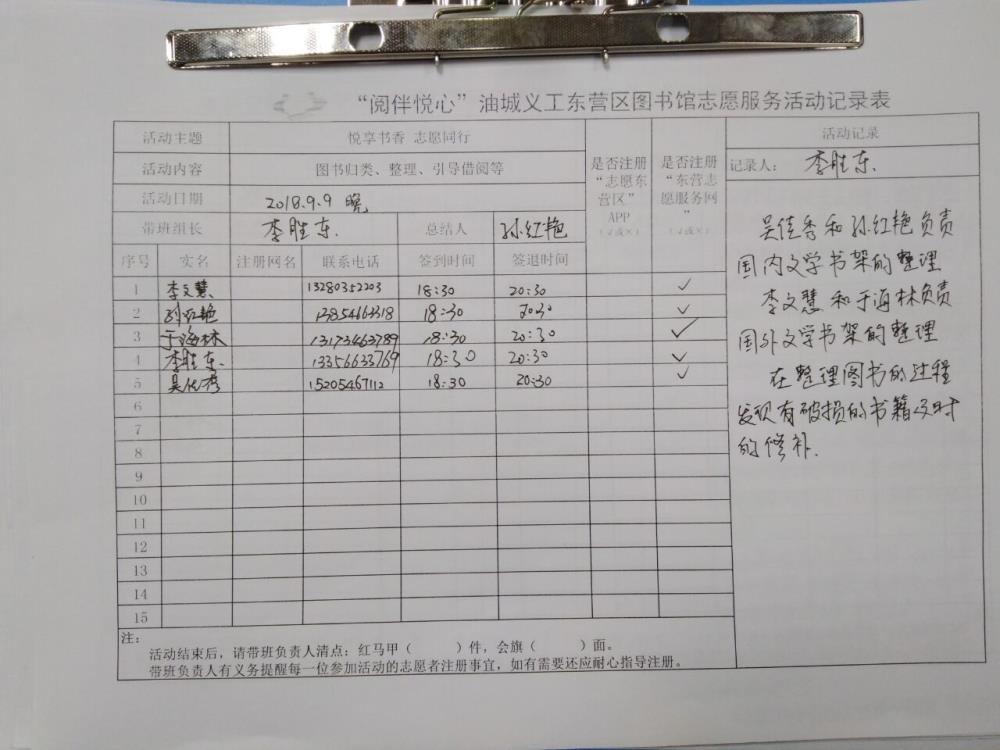 “阅伴悦心”油城义工东营区图书馆志愿服务活动记录表
活动主题 悦享书香 志愿同行
活动内容 图书归类、整理、引导借阅等
活动日期 2018.9.9 晚
带班组长 李胜东. 总结人 孙红艳
是否注册“志愿东营区”APP（√或×）
是否注册“东营志愿服务网”（√或×）
活动记录
记录人： 李胜东.
序号 实名 注册网名 联系电话 签到时间 签退时间
1 李文慧 13280352203 18:30 20:30 ✓
2 孙红艳 13854663318 18:30 20:30 ✓
3 于海林 13173463789 18:30 20:30 ✓
4 李胜东. 13356633769 18:30 20:30 ✓
5 吴佳秀 15205467112 18:30 20:30 ✓
6
7
8
9
10
11
12
13
14
15
吴佳秀和孙红艳负责
国内文学书架的整理
李文慧和于海林负责
国外文学书架的整理
在整理图书的过程
发现有破损的书籍及时
的修补.
注：
活动结束后，请带班负责人清点：红马甲（ ）件，会旗（ ）面。
带班负责人有义务提醒每一位参加活动的志愿者注册事宜，如有需要还应耐心指导注册。